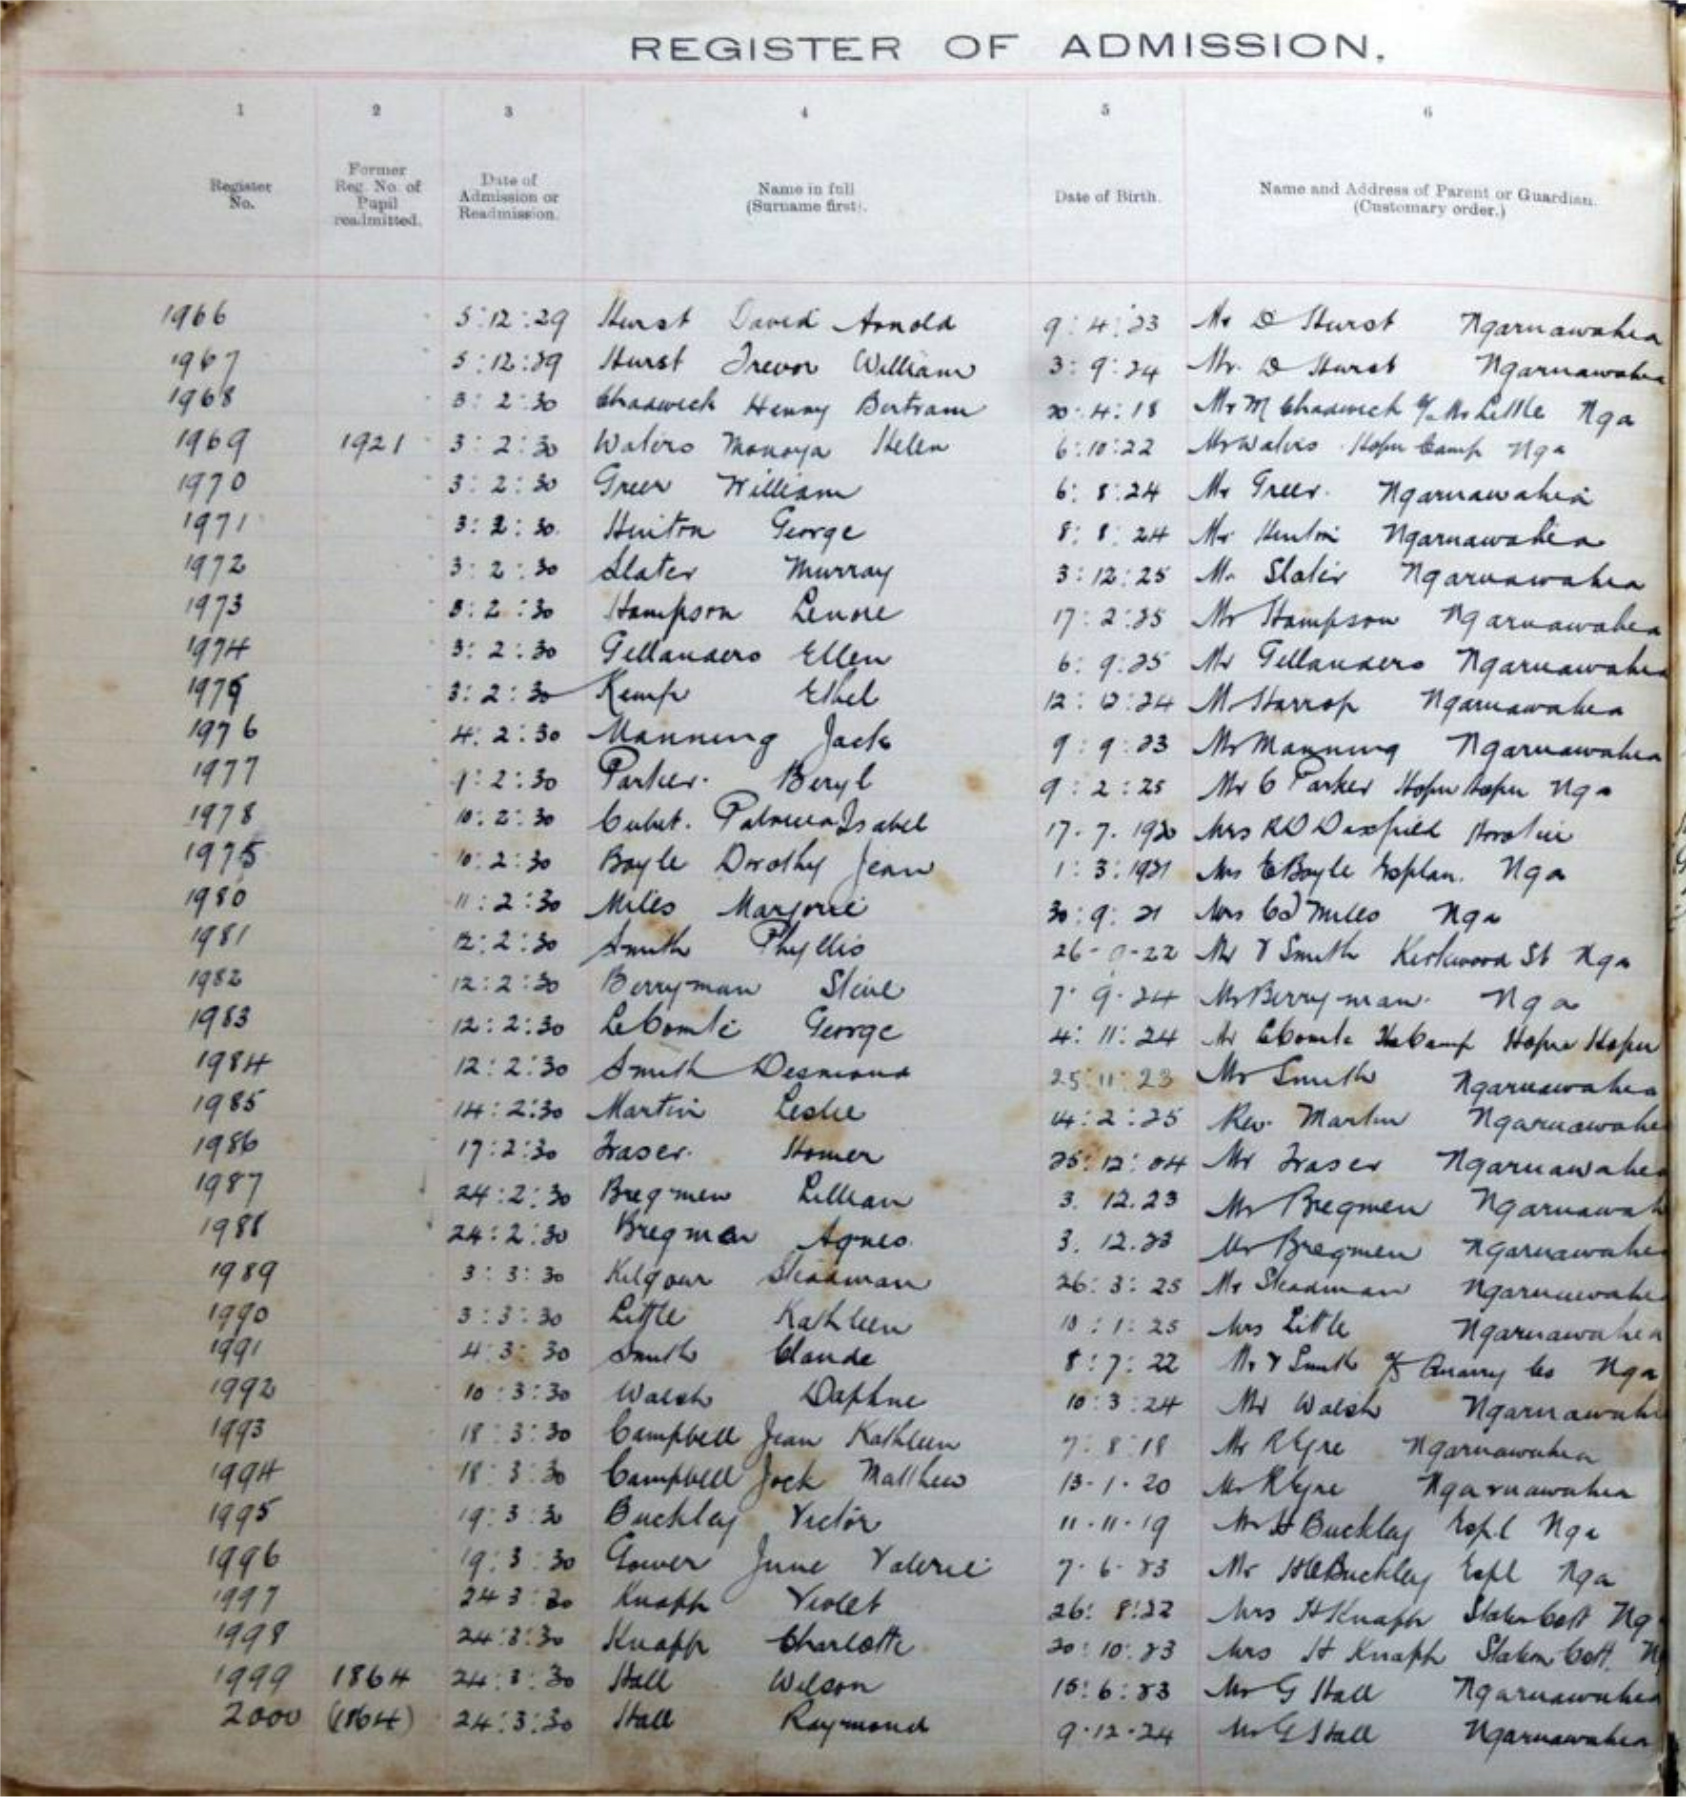 REGISTER OF ADMISSION.
1 2 3 4 5 6
Register No. Former Reg. No. of Pupil readmitted. Date of Admission or Readmission. Name in full (Surname first). Date of Birth. Name and Address of Parent or Guardian. (Customary order.)
1966 5:12:29 Hurst David Arnold 9:4:23 Mr D Hurst Ngaruawahia
1967 5:12:29 Hurst Trevor William 3:9:24 Mr. D Hurst Ngaruawahia
1968 3:2:30 Chadwick Henry Bertram 20:4:18 Mr M Chadwick c/o Mr Little Nga
1969 1921 3:2:30 Waters Helen 6:10:22 Mr Waters Hopu Camp Nga
1970 3:2:30 Greer William 6:8:24 Mr Greer. Ngaruawahia
1971 3:2:30. Hinton George 8:8:24 Mr Hinton Ngaruawahia
1972 3:2:30 Slater Murray 3:12:25 Mr Slater Ngaruawahia
1973 3:2:30 Hampson Lenore 17:2:25 Mr Hampson Ngaruawahia
1974 3:2:30 Gellanders Ellen 6:9:25 Mr Gellanders Ngaruawahia
1975 3:2:30 Kemp Ethel 12:12:24 Mr Harrop Ngaruawahia
1976 4:2:30 Manning Jack 9:9:23 Mr Manning Ngaruawahia
1977 9:2:30 Parker. Beryl 9:2:25 Mr C Parker Hopu Hopu Nga
1978 10:2:30 Patricia Isabel 17.7.1920 Mrs R D
1975 10:2:30 Boyle Dorothy Jean 1:3:1921 Mrs E Boyle Esplan. Nga
1980 11:2:30 Miles Marjorie 30:9:21 Mrs C J Miles Nga
1981 12:2:30 Smith Phyllis 26- -22 Mr V Smith Kirkwood St Nga
1982 12:2:30 Berryman 7.9.24 Mr Berryman. Nga
1983 12:2:30 LeComte George 4:11:24 Mr LeComte Camp Hopu Hopu
1984 12:2:30 Smith Desmond 25:11:23 Mr Smith Ngaruawahia
1985 14:2:30 Martin Leslie 4:2:25 Rev. Martin Ngaruawahia
1986 17:2:30 Fraser. Homer 25:12:24 Mr Fraser Ngaruawahia
1987 24:2:30 Bregmen Lillian 3.12.23 Mr Bregmen Ngaruawah
1988 24:2:30 Bregman Agnes. 3.12.23 Mr Bregmen Ngaruawahi
1989 3:3:30 Kilgour Steadman 26:3:25 Mr Steadman Ngaruawahi
1990 3:3:30 Little Kathleen 10:1:25 Mrs Little Ngaruawahia
1991 4:3:30 Smith Claude 8:7:22 Mr V Smith c/o Quarry Co Nga
1992 10:3:30 Walsh Daphne 10:3:24 Mr Walsh Ngaruawahi
1993 18:3:30 Campbell Jean Kathleen 7:8:18 Mr R Eyre Ngaruawahia
1994 18:3:30 Campbell Jock Matthew 13.1.20 Mr R Eyre Ngaruawahia
1995 19:3:30 Buckley Victor 11-11-19 Mr H Buckley Espl Nga
1996 19:3:30 Gower June Valerie 7.6.23 Mr H C Buckley Espl Nga
1997 24 3:30 Knapp Violet 26:8:22 Mrs H Knapp Station Cott Ng
1998 24:3:30 Knapp Charlotte 20:10:23 Mrs H Knapp Station Cott. N
1999 1864 24:3:30 Hall Wilson 15:6:23 Mr G Hall Ngaruawahia
2000 (1864) 24:3:30 Hall Raymond 9.12.24 Mr G Hall Ngaruawahia